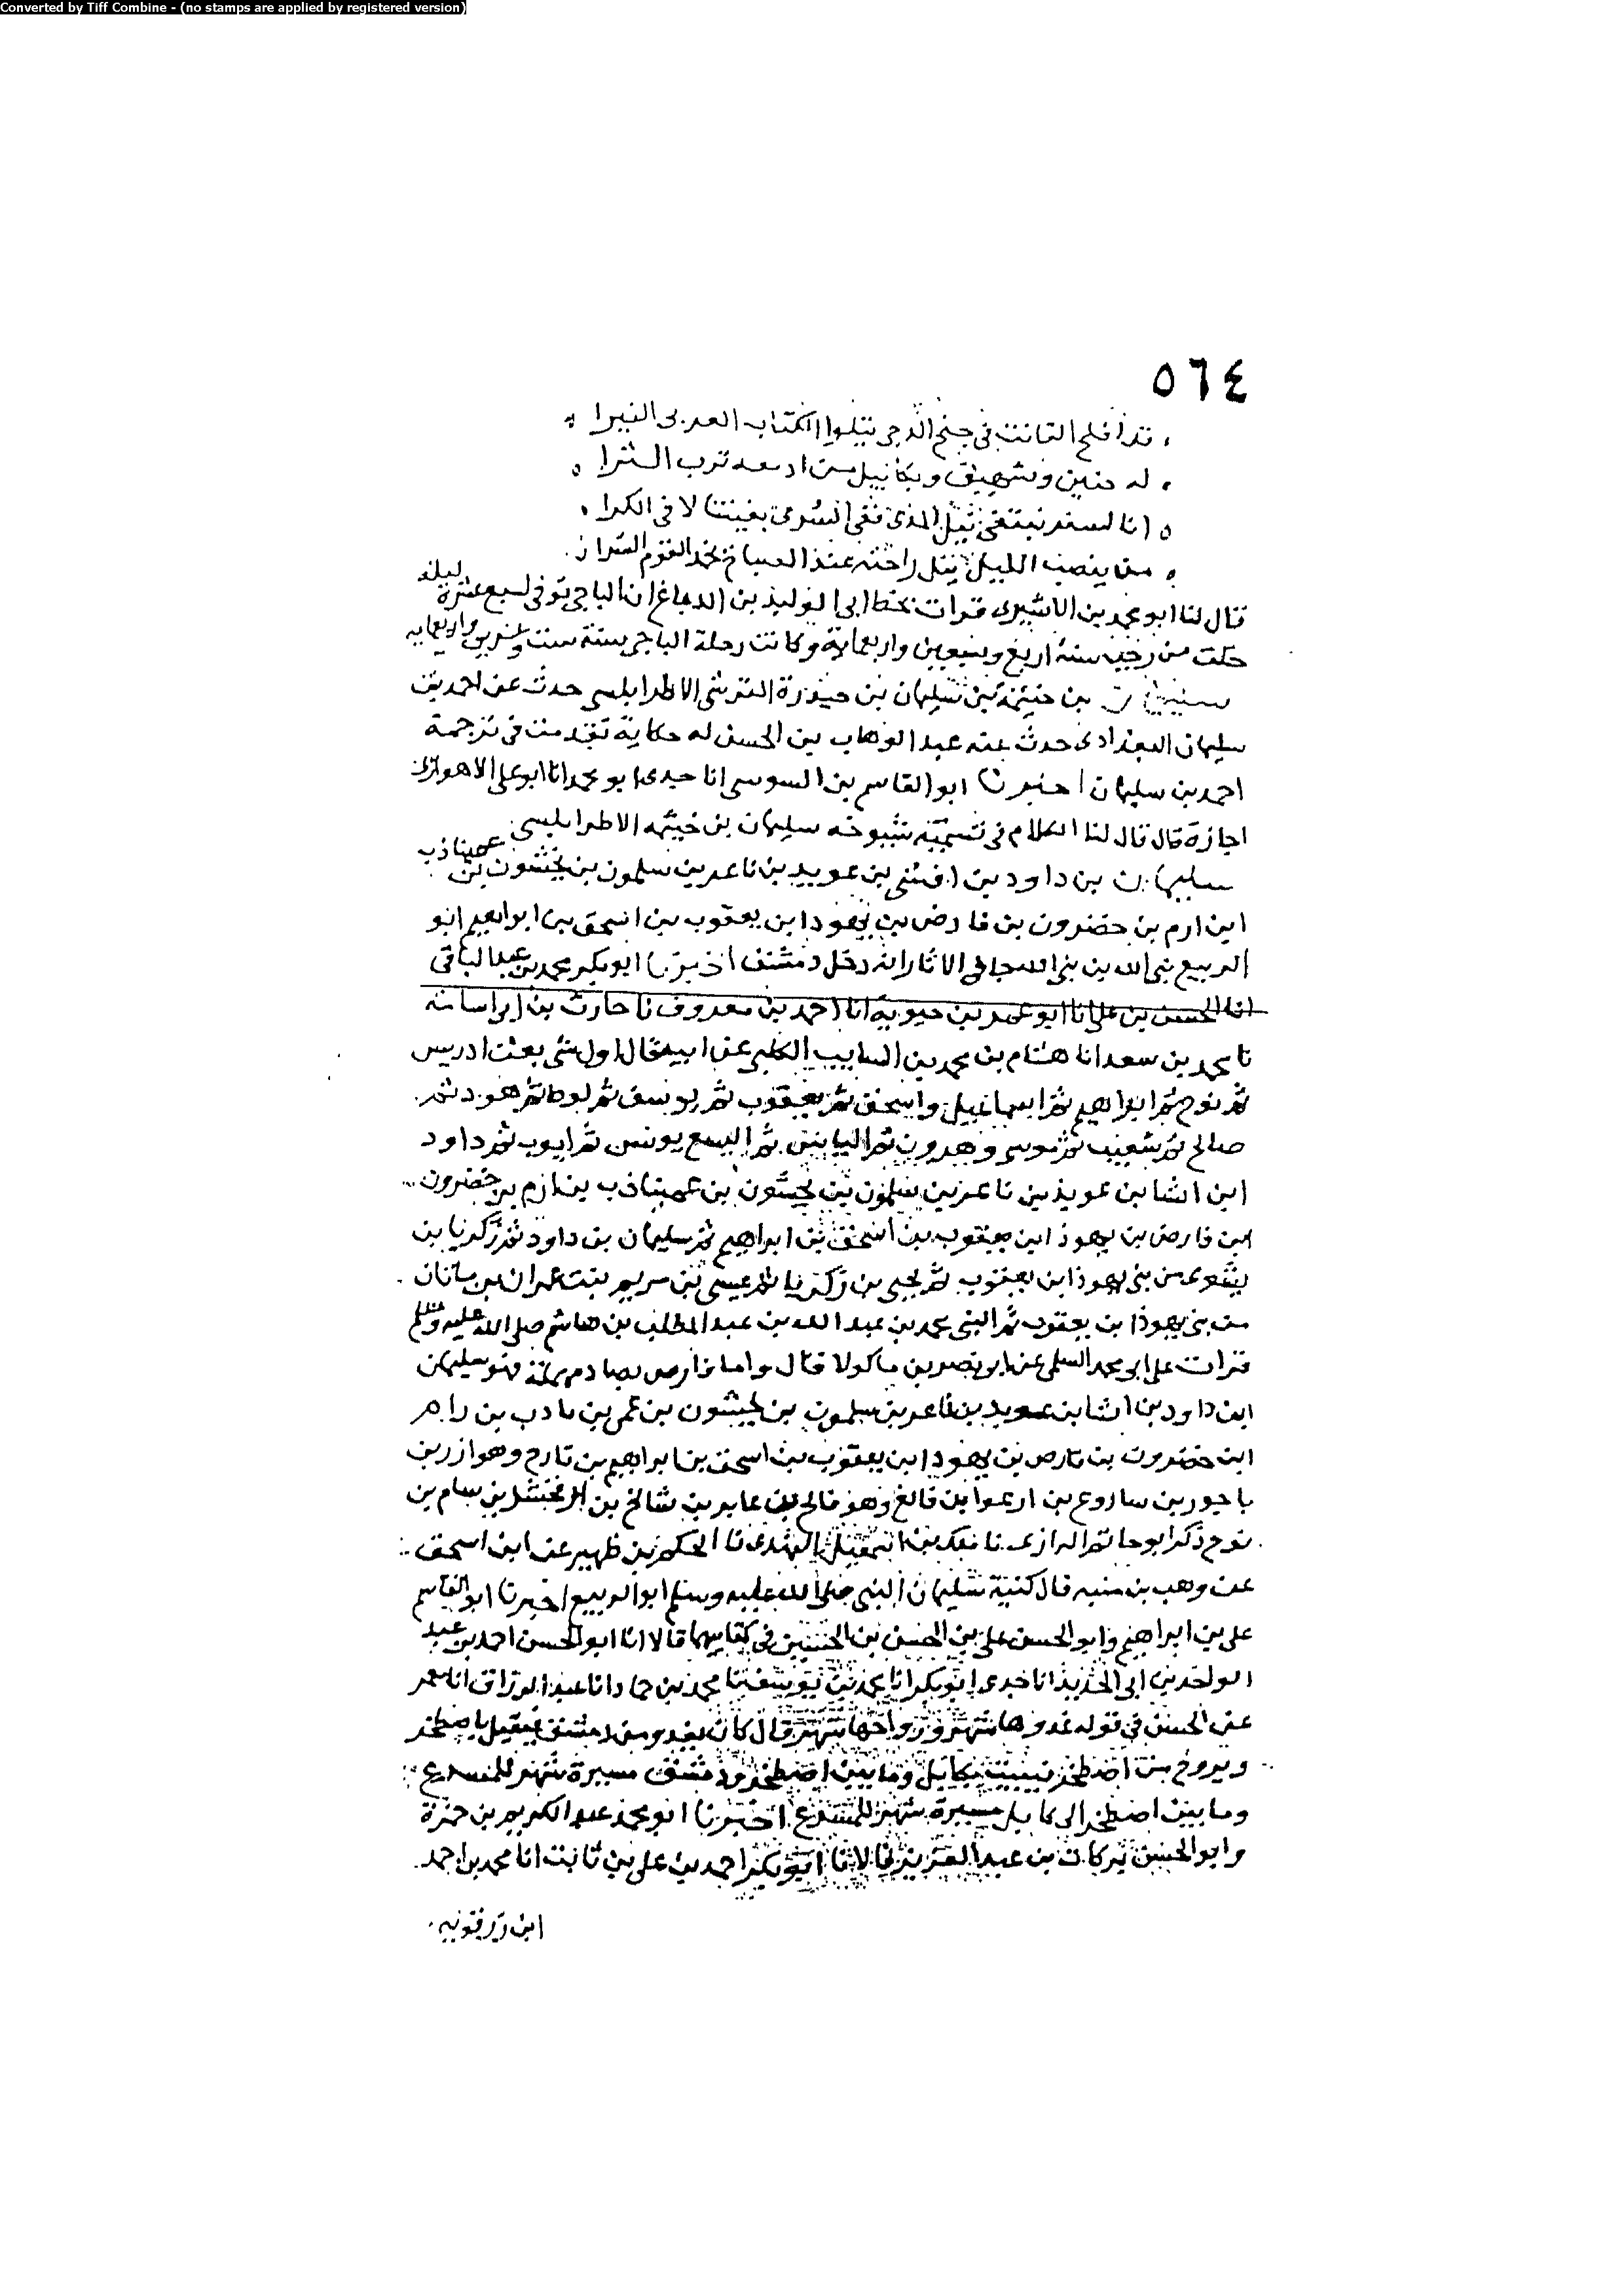 Converted by Tiff Combine - (no stamps are applied by registered version)
٥٦٤
قد افلح القانت في جنح الدجى يتلوا الكتاب العربي النيرا
له حنين وشهيق وبكا يبل من ادمعه ترب الثرا
انا لسفر نبتغي نيل المدى ففي السرى بغيتنا لا في الكرا
من ينصب الليل ينل راحته عند الصباح يحمد القوم السرا
قال لنا ابو محمد بن الاشيري قرات بخط ابي الوليد بن الدباغ ان الباجي توفي لسبع عشرة ليلة
خلت من رجب سنة اربع وسبعين واربعماية وكانت رحلة الباجي سنة ست وعشرين واربعمايه
سليمان بن خيثمة بن سليمان بن حيدرة القرشي الاطرابلسي حدث عن احمد بن
سليمان البغدادي حدث عنه عبد الوهاب بن الحسن له حكاية تقدمت في ترجمة
احمد بن سليمان اخبرنا ابو القاسم بن السوسي انا جدي ابو محمد انا ابو علي الاهوازي
اجازة قال قال لنا الكلابي في تسمية شيوخه سليمان بن خيثمه الاطرابلسي
سليمان بن داود بن افشى بن عويد بن ناعر بن سلمون بن يخشون بن عميناذب
ابن ارم بن حضرون بن فارض بن يهوذا بن يعقوب بن اسحق بن ابراهيم ابو
الربيع نبي الله بن نبي الله جا في الاثار انه دخل دمشق اخبرنا ابو بكر محمد بن عبد الباقي
انا الحسن بن علي انا ابو عمر بن حيويه انا احمد بن معروف نا حارث بن ابي اسامة
نا محمد بن سعد انا هشام بن محمد بن السايب الكلبي عن ابيه قال اول نبي بعث ادريس
ثم نوح ثم ابراهيم ثم اسماعيل واسحق ثم يعقوب ثم يوسف ثم لوط ثم هود ثم
صالح ثم شعيب ثم موسى وهرون ثم الياس ثم اليسع يونس ثم ايوب ثم داود
ابن اشا بن عويذ بن ناعر بن سلمون بن يحشون بن عميناذب بن ارم بن حضرون
ابن فارص بن يهوذا بن يعقوب بن اسحق بن ابراهيم ثم سليمان بن داود ثم زكريا بن
يشوى من بني يهوذا بن يعقوب ثم يحيى بن زكريا ثم عيسى بن مريم بنت عمران بن ماثان
من بني يهوذا بن يعقوب ثم النبي محمد بن عبد الله بن عبد المطلب بن هاشم صلى الله عليه وسلم
قرات على ابي محمد السلمي عن ابي نصر بن ماكولا قال واما فارص بصاد مهملة فهو سليمان
ابن داود بن اشا بن عويد بن ناعر بن سلمون بن يحشون بن عمي بن نادب بن رام
ابن حضرون بن فارص بن يهوذا بن يعقوب بن اسحق بن ابراهيم بن تارح وهو ازر بن
ناحور بن ساروع بن ارعوا بن فالغ وهو فالح بن عابر بن شالخ بن ارفخشد بن سام بن
نوح ذكر ابو حاتم الرازي نا الحكم بن ظهير عن ابن اسحق
عن وهب بن منبه قال كنية سليمان النبي صلى الله عليه وسلم ابو الربيع اخبرنا ابو القاسم
علي بن ابراهيم وابو الحسن علي بن الحسن بن الحسين في كتابيهما قالا انا ابو الحسن احمد بن عبد
الواحد بن ابي الحديد انا جدي ابو بكر انا محمد بن يوسف نا محمد بن حماد انا عبد الرزاق انا معمر
عن الحسن في قوله غدوها شهر ورواحها شهر قال كان يغدو من دمشق فيقيل باصطخر
ويروح من اصطخر فيبيت بكابل وما بين اصطخر ودمشق مسيرة شهر للمسرع
وما بين اصطخر الى كابل مسيرة شهر للمسرع اخبرنا ابو محمد عبد الكريم بن حمزة
وابو الحسن بركات بن عبد العزيز قالا نا ابو بكر احمد بن علي بن ثابت انا محمد بن احمد
ابن رزقويه